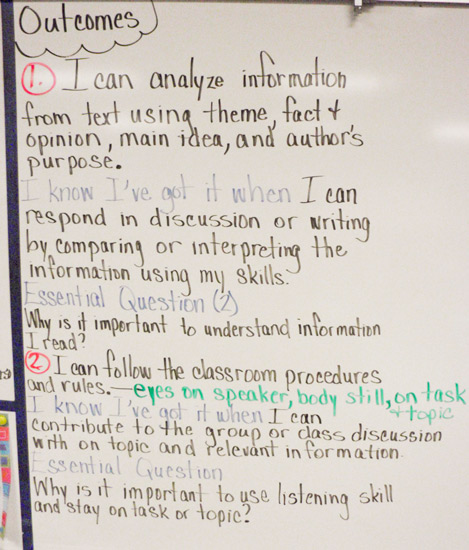 Outcomes
1. I can analyze information
from text using theme, fact +
opinion, main idea, and author's
purpose.
I know I've got it when I can
respond in discussion or writing
by comparing or interpreting the
information using my skills.
Essential Question (2)
Why is it important to understand information
I read?
2 I can follow the classroom procedures
and rules. — eyes on speaker, body still, on task
+ topic
I know I've got it when I can
contribute to the group or class discussion
with on topic and relevant information.
Essential Question
Why is it important to use listening skill
and stay on task or topic?